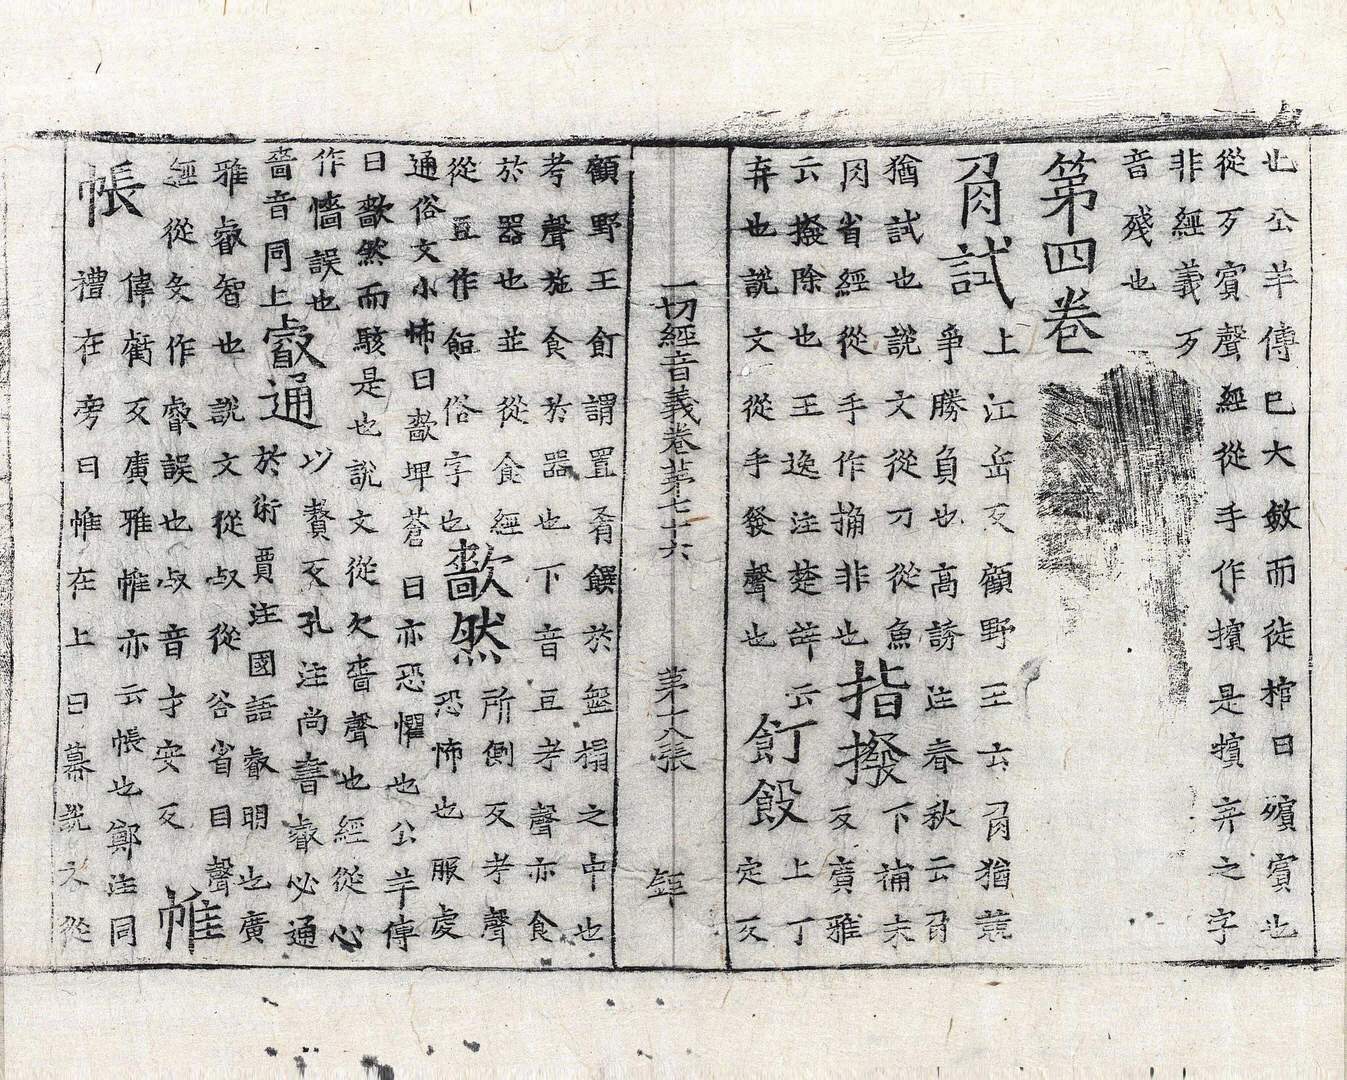 也公羊傳巳大斂而徒棺曰殯賓也
從歹賓聲經從手作擯是擯弃之字
非經義歹
音殘也
第四卷
角試
上江岳反顧野王云角猶競
爭勝負也高誘注春秋云角
猶試也說文從刀從魚
肉省經從手作捔非也
指撥
下補末
反廣雅
云撥除也王逸注楚辞云
弃也說文從手發聲也
飣餖
上丁
定反
一切經音義卷苐七十六 苐十八張 鉅
顧野王飣謂置肴饌於盤榻之中也
考聲施食於器也下音豆考聲亦食
於器也並從食經
從豆作𩚩俗字也
歗然
所側反考聲
恐怖也服虔
通俗文小怖曰歗埤蒼曰亦恐懼也公羊傳
曰歗然而駭是也說文從欠嗇聲也經從心
作懎誤也
嗇音同上
叡通
以贅反孔注尚書叡必通
於術賈注國語叡明也廣
雅叡智也說文從𣦻從谷省目聲
經從攵作叡誤也𣦻音才安反
帷
帳
傳虧反廣雅帷亦云帳也鄭注同
禮在旁曰帷在上曰幕說文從